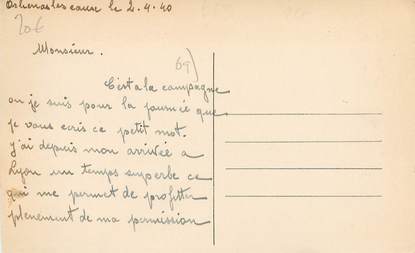 les eaux le 2-4-40
20€
Monsieur.
69)
C'est a la campagne
ou je suis pour la journée que
je vous ecris ce petit mot.
J'ai depuis mon arrivée a
Lyon un temps superbe ce
qui me permet de profitter
plenement de ma permission